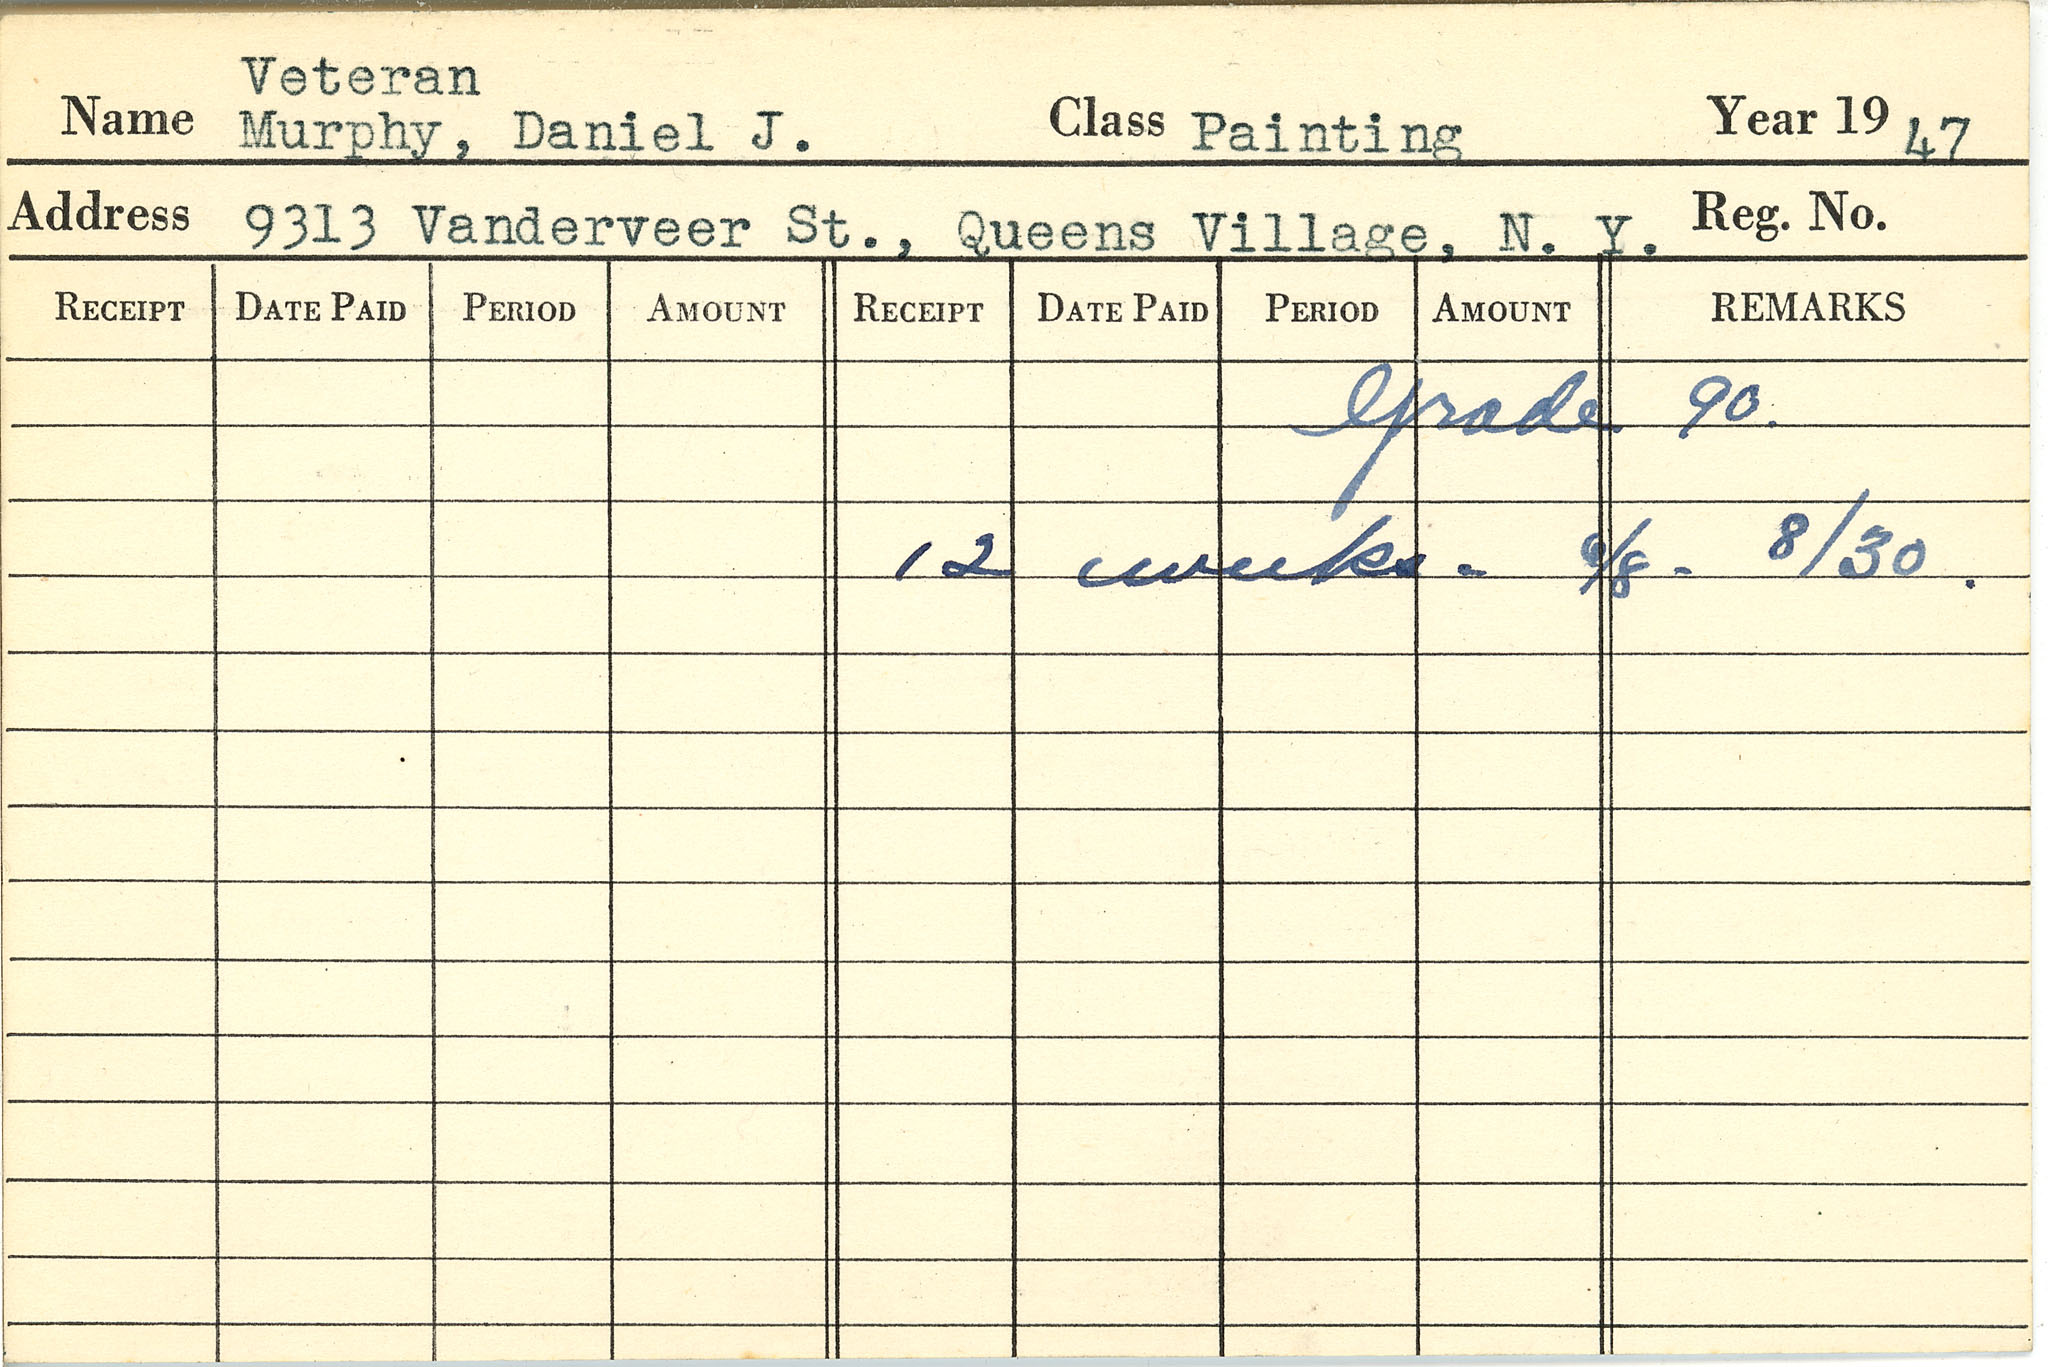 Veteran
Name Murphy, Daniel J. Class Painting Year 19 47
Address 9313 Vanderveer St., Queens Village, N. Y. Reg. No.
RECEIPT DATE PAID PERIOD AMOUNT RECEIPT DATE PAID PERIOD AMOUNT REMARKS
Grade 90.
12 weeks - - 8/30.